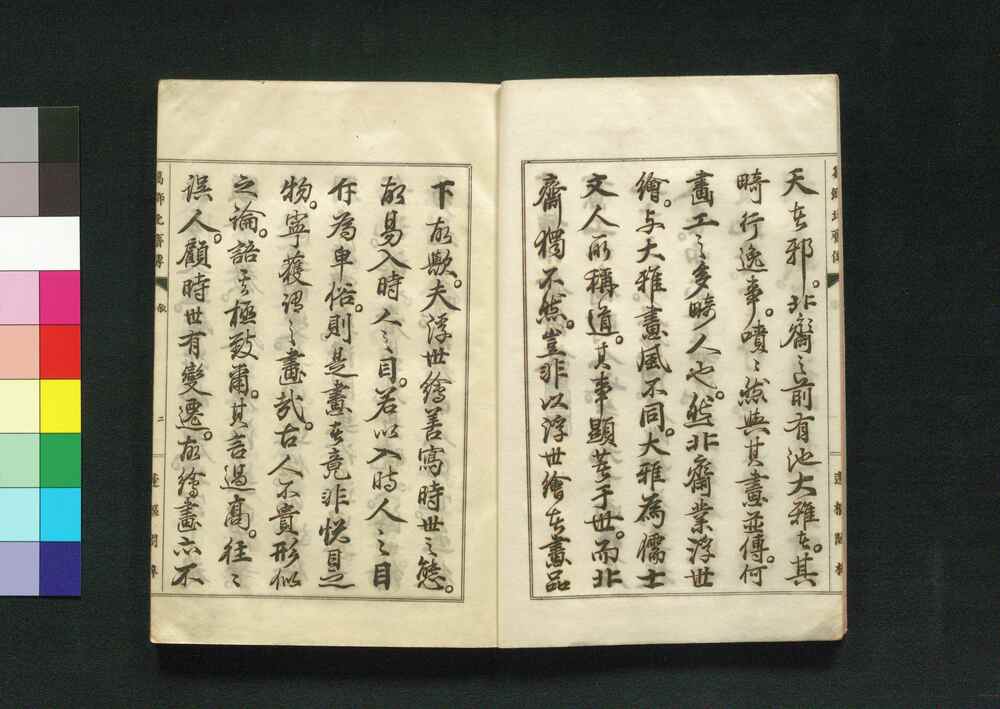 天者邪。北齋之前有池大雅者。其
畸行逸事。嘖々然與其畫並傳。何
畫工之多畸人也。然北齋業浮世
繪。与大雅畫風不同。大雅為儒士
文人所稱道。其事顯著于世。而北
齋獨不然。豈非以浮世繪者畫品
下故歟。夫浮世繪善寫時世之態。
故易入時人之目。若以入時人之目
作為卑俗。則是畫者竟非悅目之
物。寧獲謂之畫哉。古人不貴形似
之論。語其極致爾。其言過高。往々
誤人。顧時世有變遷。故繪畫亦不
葛飾北齋傳
敘
二
蓬樞閣